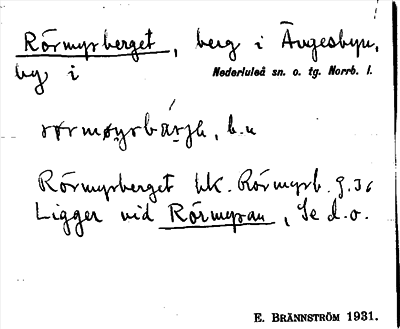 Rörmyrberget, berg i Ängesbyn,
by i Nederluleå sn. o. tg. Norrb. l.
rørmøyrbärjh, b.u
Rörmyrberget hk. Rörmyrb. g.36
Ligger vid Rörmyran, Se d.o.
E. BRÄNNSTRÖM 1931.